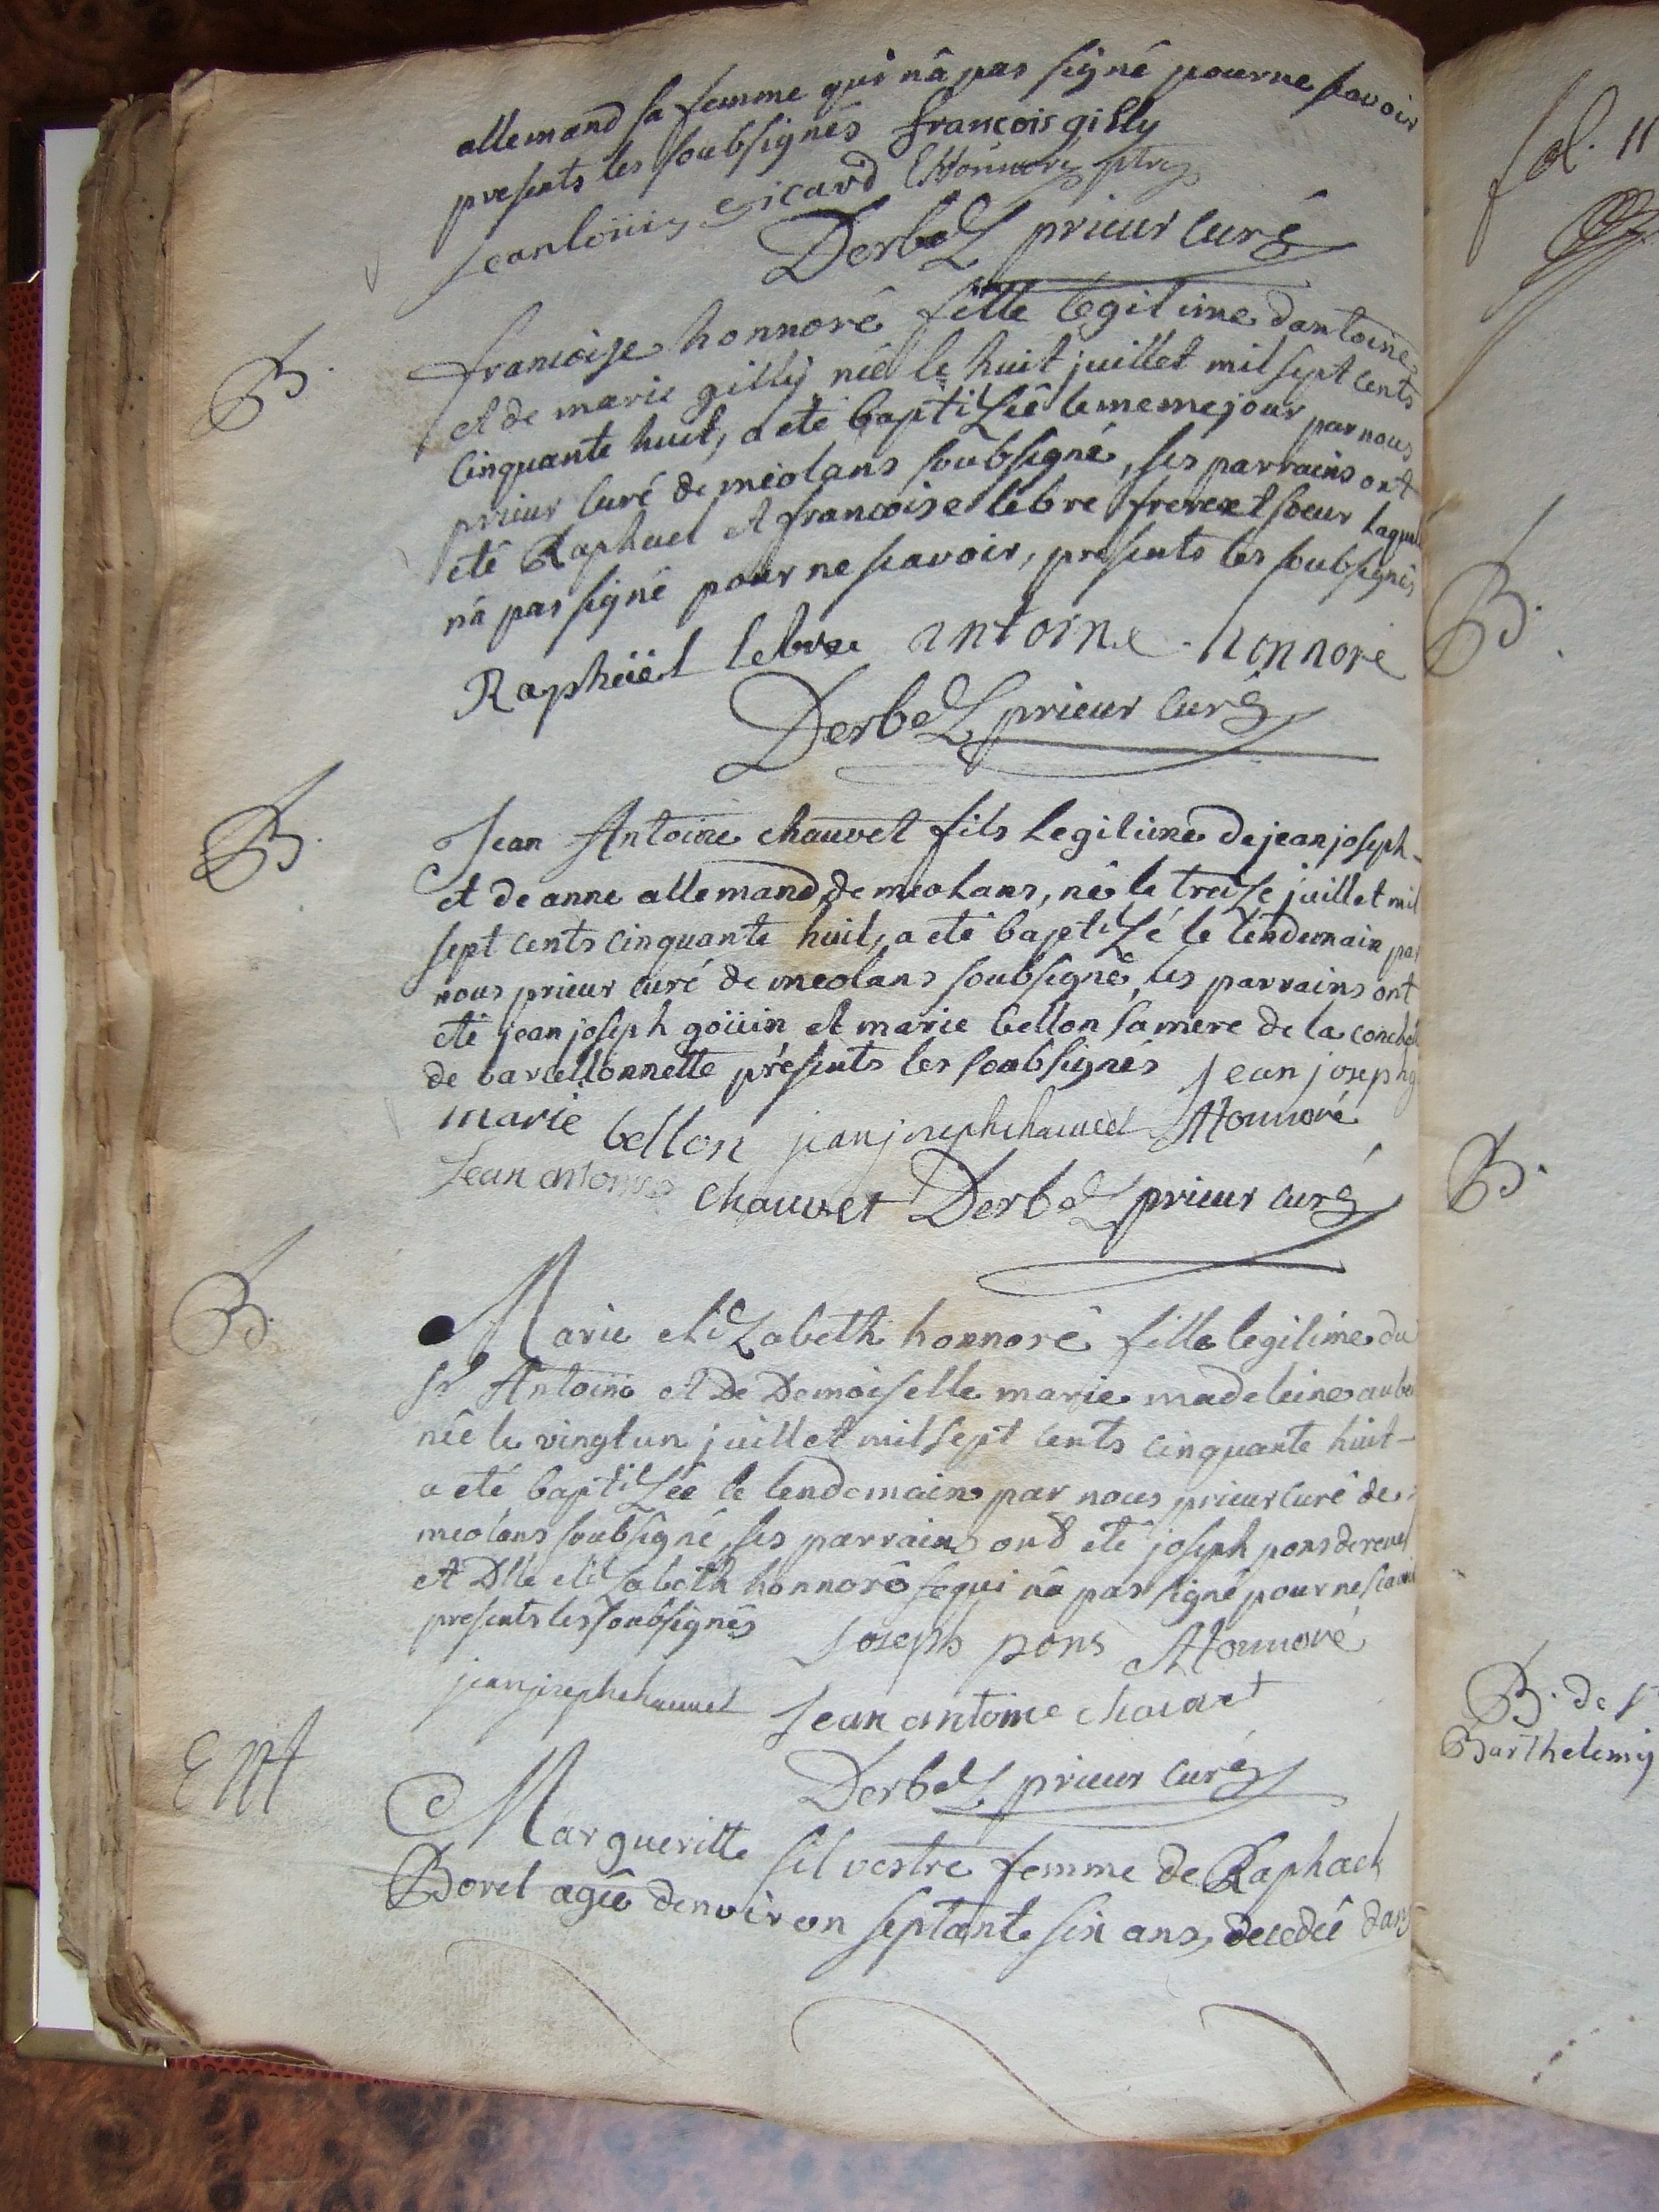 allemand sa femme qui nâ pas signé pour ne scavoir
presents les soubsignés françois gilly
jean loüis sicard Honnoré ptre
Derbez prieur curé
B.
françoise honnoré fille legitime dantoine
et de marie gilly née le huit juillet mil sept cents
cinquante huit, a eté baptizée le meme jour par nous
prieur curé de meolans soubsigné, ses parrains ont
eté Raphael et françoise lebre frere et soeur laquel
nâ pas signé pour ne scavoir, presents les soubsignés
Raphaël lebre antoine honnoré
Derbez prieur curé
B.
Jean Antoine chauvet fils legitime de jean joseph
et de anne allemand de meolans, né le treize juillet mil
sept cents cinquante huit, a eté baptizé le lendemain par
nous prieur curé de meolans soubsigné, ses parrains ont
eté jean joseph goüin et marie bellon sa mere de la conch
de barcellonnette présents les soubsignés jean joseph g
marie bellon jean joseph chauvet Honnoré
Jean antoine chauvet Derbez prieur curé
B.
Marie elizabeth honnoré fille legitime du
sr Antoine et De Demoiselle marie madeleine auber
née le vingt un juillet mil sept cents cinquante huit
a eté baptizée le lendemain par nous prieur curé de
meolans soubsigné, ses parrains ont eté joseph pons de revel
et Dlle elisabeth honnoré qui nâ pas signé pour ne scavoi
presents les soubsignés joseph pons Honnoré
jean joseph chauvet Jean antoine chauvet
Derbez prieur curé
Ent
Margueritte silvestre femme de Raphael
Borel agée denviron septante six ans, decedée dans
fol. 11
B.
B.
B. de S
Barthelemy